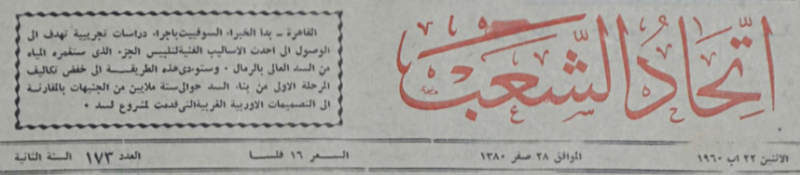 اتحاد الشعب
القاهرة ـ بدا الخبراء السوفييت باجراء دراسات تجريبية تهدف الى
الوصول الى احدث الاساليب الفنية لتلبيس الجزء الذى ستغمره المياه
من السد العالى بالرمال ٠ وستودى هذه الطريقة الى خفض تكاليف
المرحلة الاولى من بناء السد حوالى ستة ملايين من الجنيهات بالمقارنة
الى التصميمات الاوربية الغربية التى قدمت لمشروع السد ٠
الاثنين ٢٢ اب ١٩٦٠ الموافق ٢٨ صفر ١٣٨٠ السعر ١٦ فلسا العدد ١٧٣ السنة الثانية